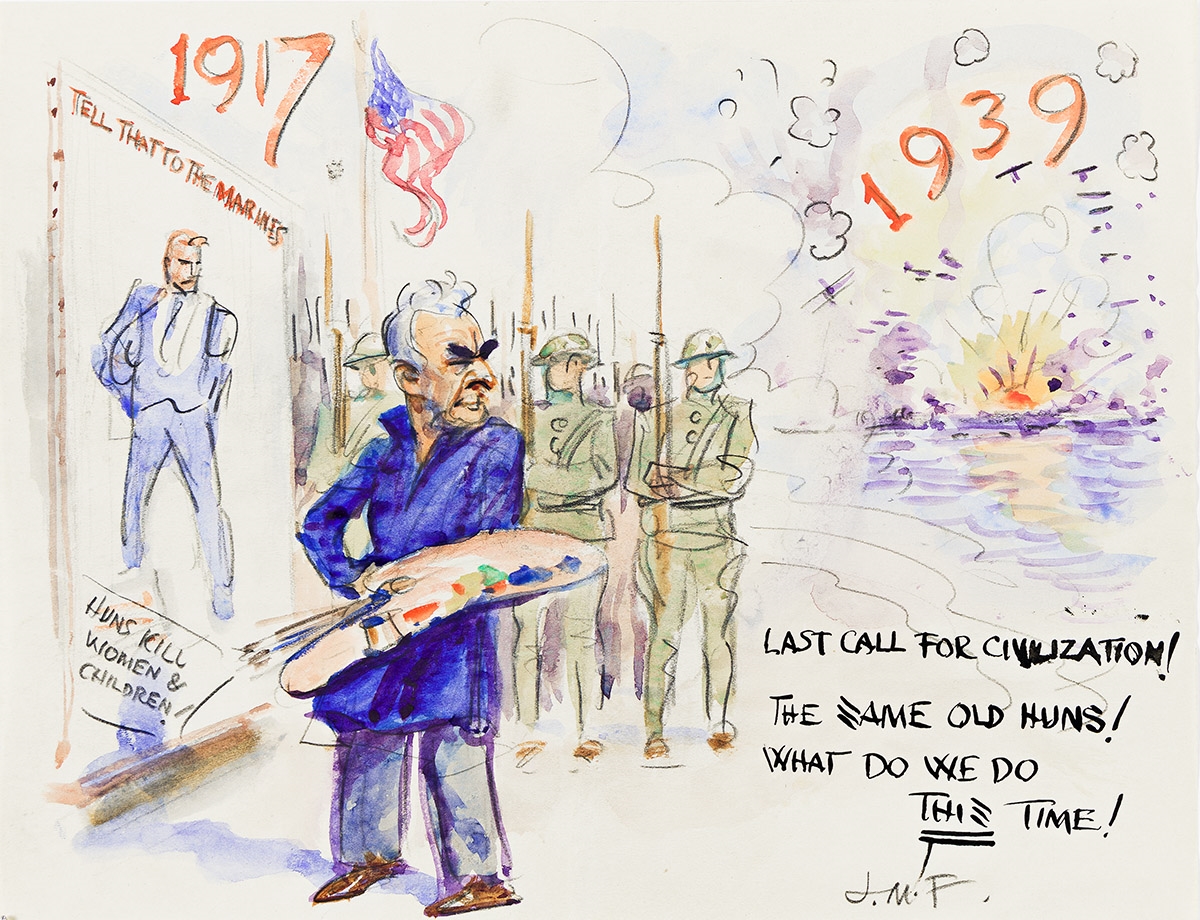 1917
1939
TELL THAT TO THE MARINES
HUNS KILL
WOMEN &
CHILDREN!
LAST CALL FOR CIVILIZATION!
THE SAME OLD HUNS!
WHAT DO WE DO
THIS TIME!
J.M.F.